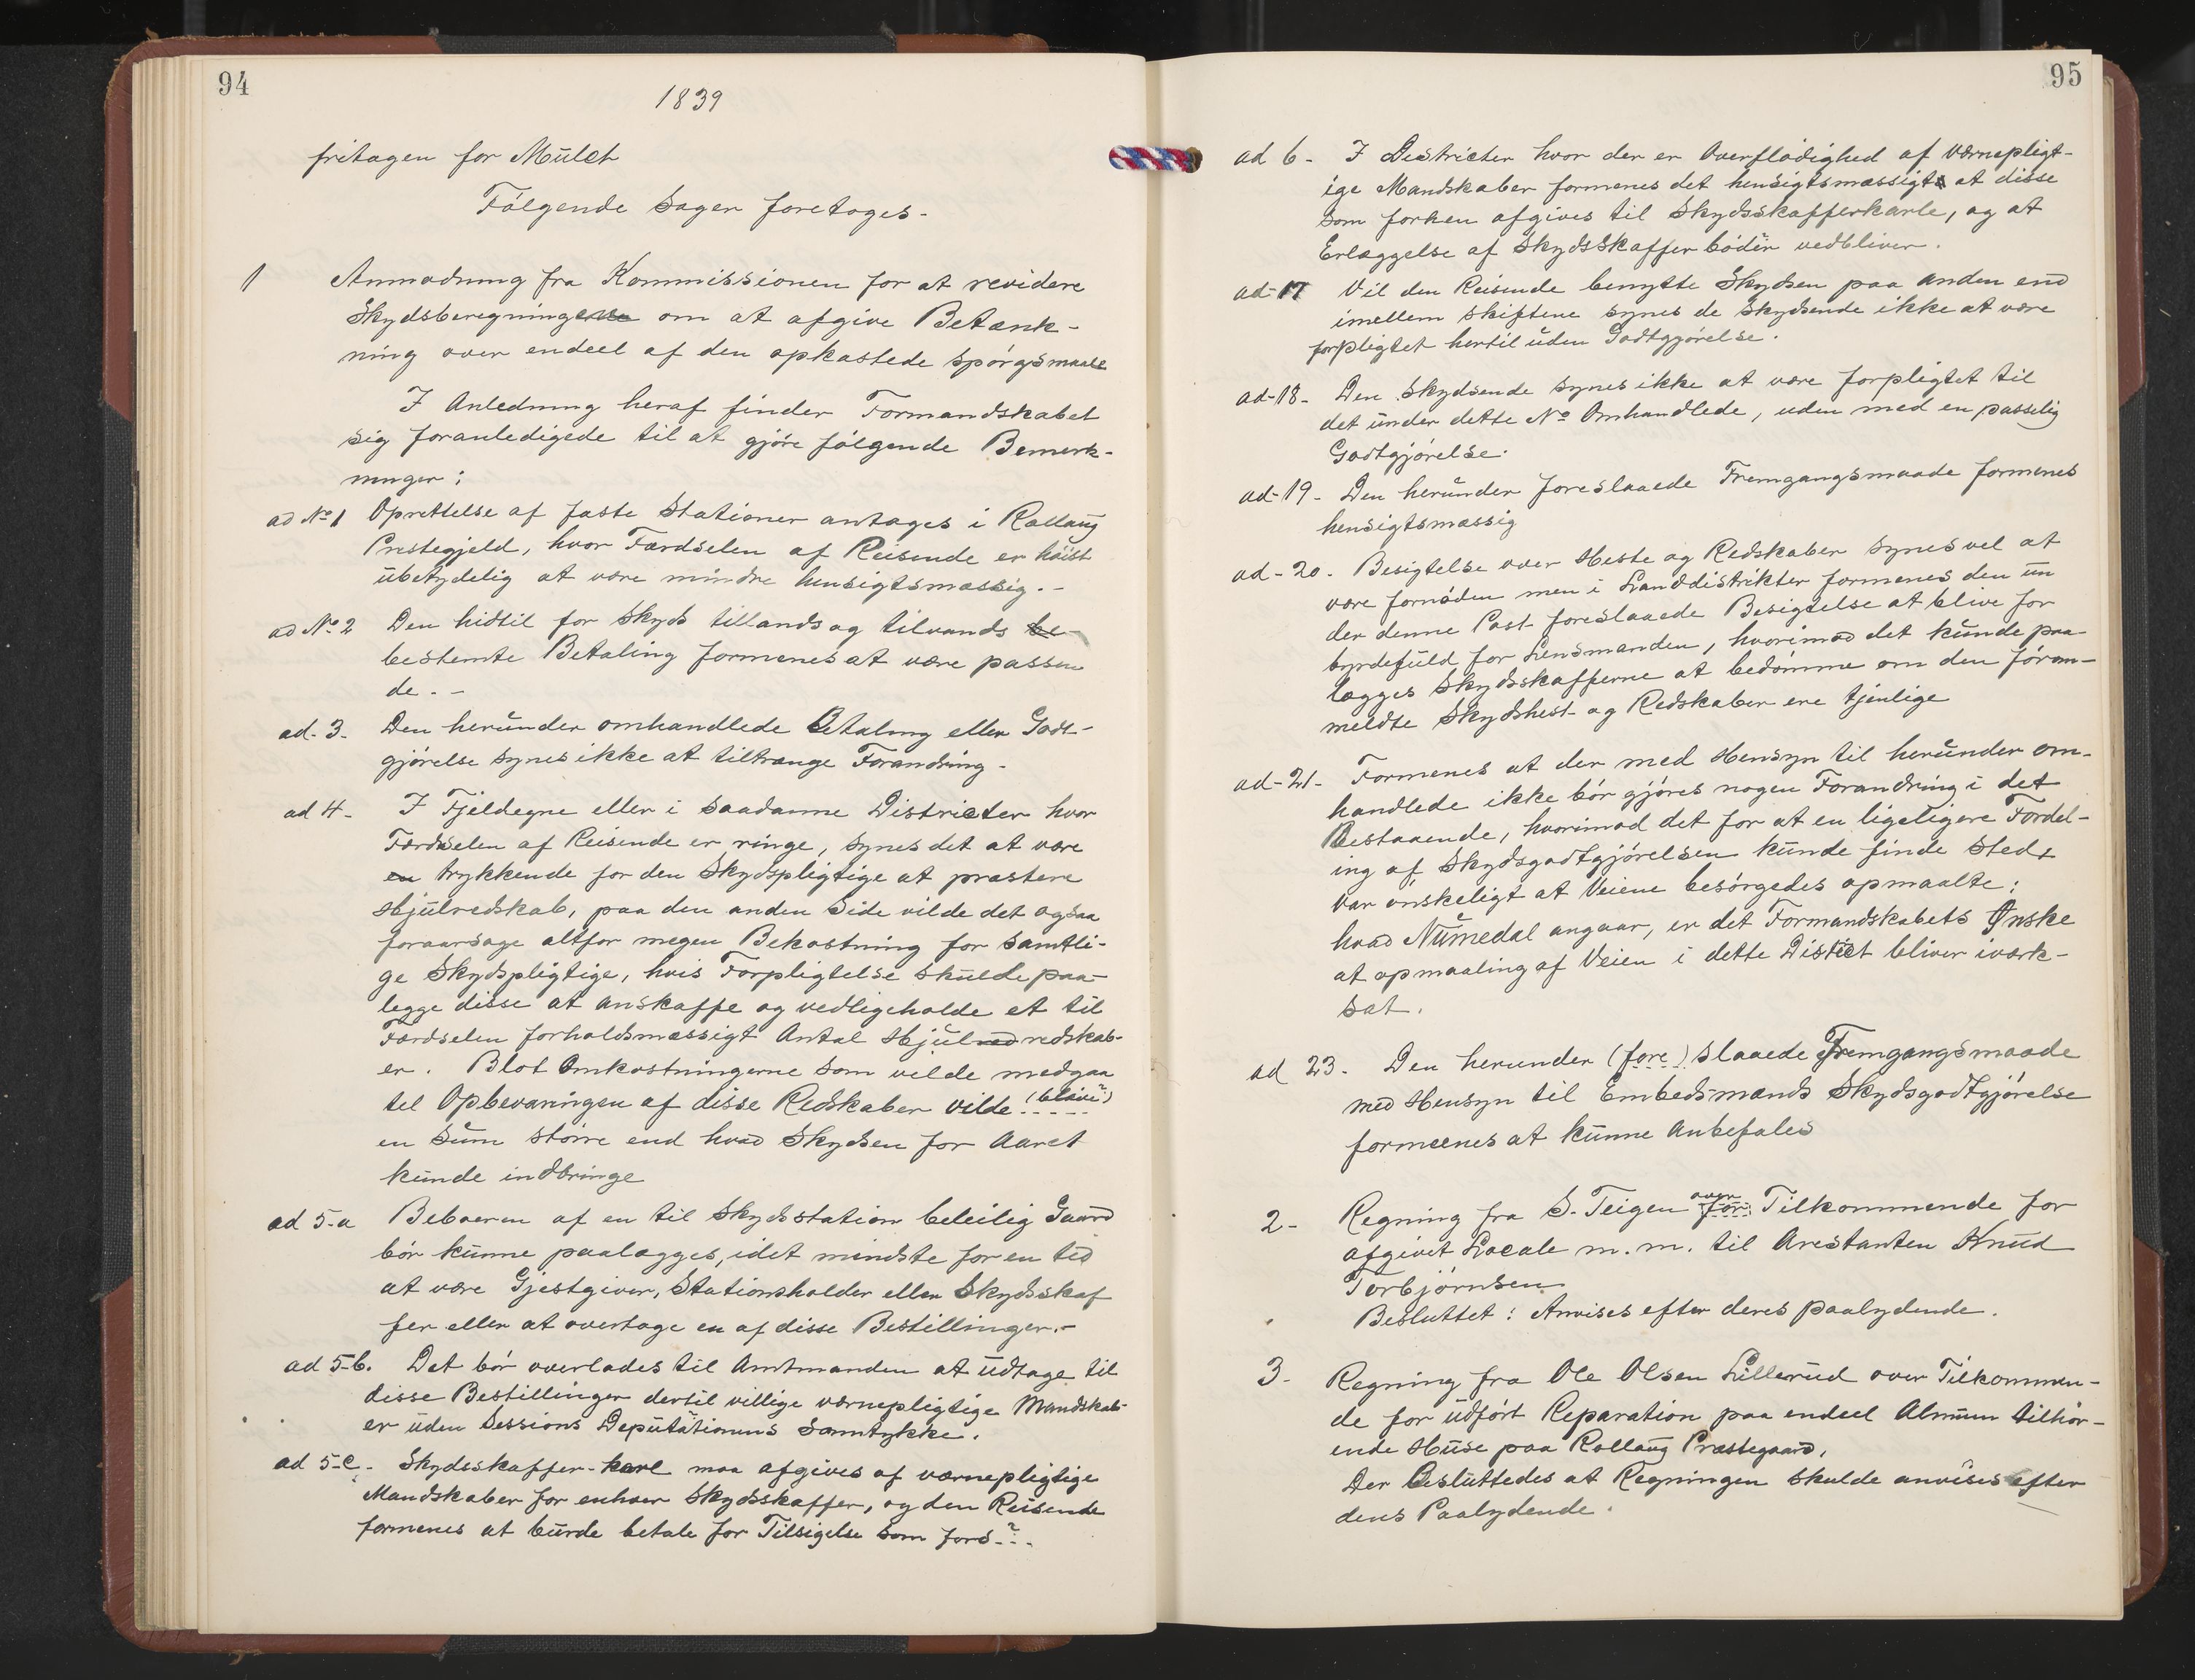 94
1839
fritagen for Mulct
Følgende Sager foretoges.
1 Anmodning fra Kommissionen for at revidere
Skydsberegningerne om at afgive Betænk-
ning over endeel af den opkastede spørgsmaale
I Anledning heraf finder Formandskabet
sig foranledigede til at gjøre følgende Bemerk-
ninger;
ad No 1 Oprettelse af faste Stationer antages i Rollaug
Prestegjeld, hvor Færdselen af Reisende er høist
ubetydelig at være mindre hensigtsmæssig.-
ad No 2 Den hidtil for Skyds tillands og tilvands be
bestemte Betaling formenes at være passen
de.-
ad. 3. Den herunder omhandlede Betaling eller Godt-
gjørelse synes ikke at tiltrænge Forandring-
ad 4- I Fjeldegne eller i saadanne Districter hvor
Færdselen af Reisende er ringe, synes det at være
en trykkende for den Skydspligtige at præstere
Hjulredskab, paa den anden Side vilde det ogsaa
foraarsage altfor megen Bekostning for samtli-
ge Skydspligtige, hvis Forpligtelse skulde paa-
legge disse at anskaffe og vedligeholde et til
Færdselen forholdsmæssigt Antal Hjulred redskab-
er. Blot Omkostningerne som vilde medgaa
til Opbevaringen af disse Redskaber vilde (blive?)
en Sum større end hvad Skydsen for Aaret
kunde indbringe
ad 5-a Beboeren af en til Skydsstation beleilig Gaard
bør kunne paalægges, idet mindste for en tid
at være Gjestgiver, Stationsholder eller Skydsskaf
fer eller at overtage en af disse Bestillinger.-
ad 5-b. Det bør overlades til Amtmanden at udtage til
disse Bestillinger dertil villige værnepligtige Mandskab-
er uden Sessions Deputationens Samtykke.
ad 5-c- Skydsskaffer-karl maa afgives af værnepligtige
Mandskaber for enhver Skydsskaffer, og den Reisende
formenes at burde betale for Tilsigelse som fors-?-
95
ad 6- I Districter hvor der er Overflødighed af Værnepligt-
ige Mandskaber formenes det hensigtsmæssigt at disse
som forhen afgives til Skydsskafferkarle, og at
Erlæggelse af SkydsSkaffer bøder vedbliver.
ad-17 Vil den Reisende benytte Skydsen paa anden end
imellem skiftene synes de Skydsende ikke at være
forpligtet hertil uden Godtgjørelse.
ad-18- Den Skydsende synes ikke at være forpligtet til
det under dette No Omhandlede, uden med en passelig
Godtgjørelse.
ad-19- Den herunder foreslaaede Fremgangsmaade formenes
hensigtsmæssig
ad-20. Besigtelse over Heste og Redskaber synes vel at
være fornøden men i Landdistrikter formenes den un
der denne Post foreslaaede Besigtelse at blive for
byrdefuld for Lensmanden, hvorimod det kunde paa-
lægges Skydsskafferne at bedømme om den føran-
meldte Skydshest og Redskaber ere tjenlige
ad-21- Formenes at der med Hensyn til herunder om-
handlede ikke bør gjøres nogen Forandring i det
Bestaaende, hvorimod det for at en ligeligere Fordel-
ing af Skydsgodtgjørelsen kunde finde Sted,
var ønskeligt at Veiene besørgedes opmaalte;
hvad Numedal angaar, er det Formandskabets Ønske
at opmaaling af Veien i dette Distict bliver iværk-
sat.
ad 23. Den herunder (fore) slaaede Fremgangsmaade
med Hensyn til Embedsmænds Skydsgodtgjørelse
formeenes at kunne Anbefales
2- Regning fra S. Teigen over for Tilkommende for
afgivet Locale m.m. til Arestanten Knud
Torbjørnsen.
Besluttet: Anvises efter deres paalydende.
3- Regning fra Ole Olsen Lillerud over Tilkommen-
de for udført Reparation paa endeel Almuen tilhør-
ende Huse paa Rollaug Præstegaard,
Der Besluttedes at Regningen skulde anvises efter
dens Paalydende.